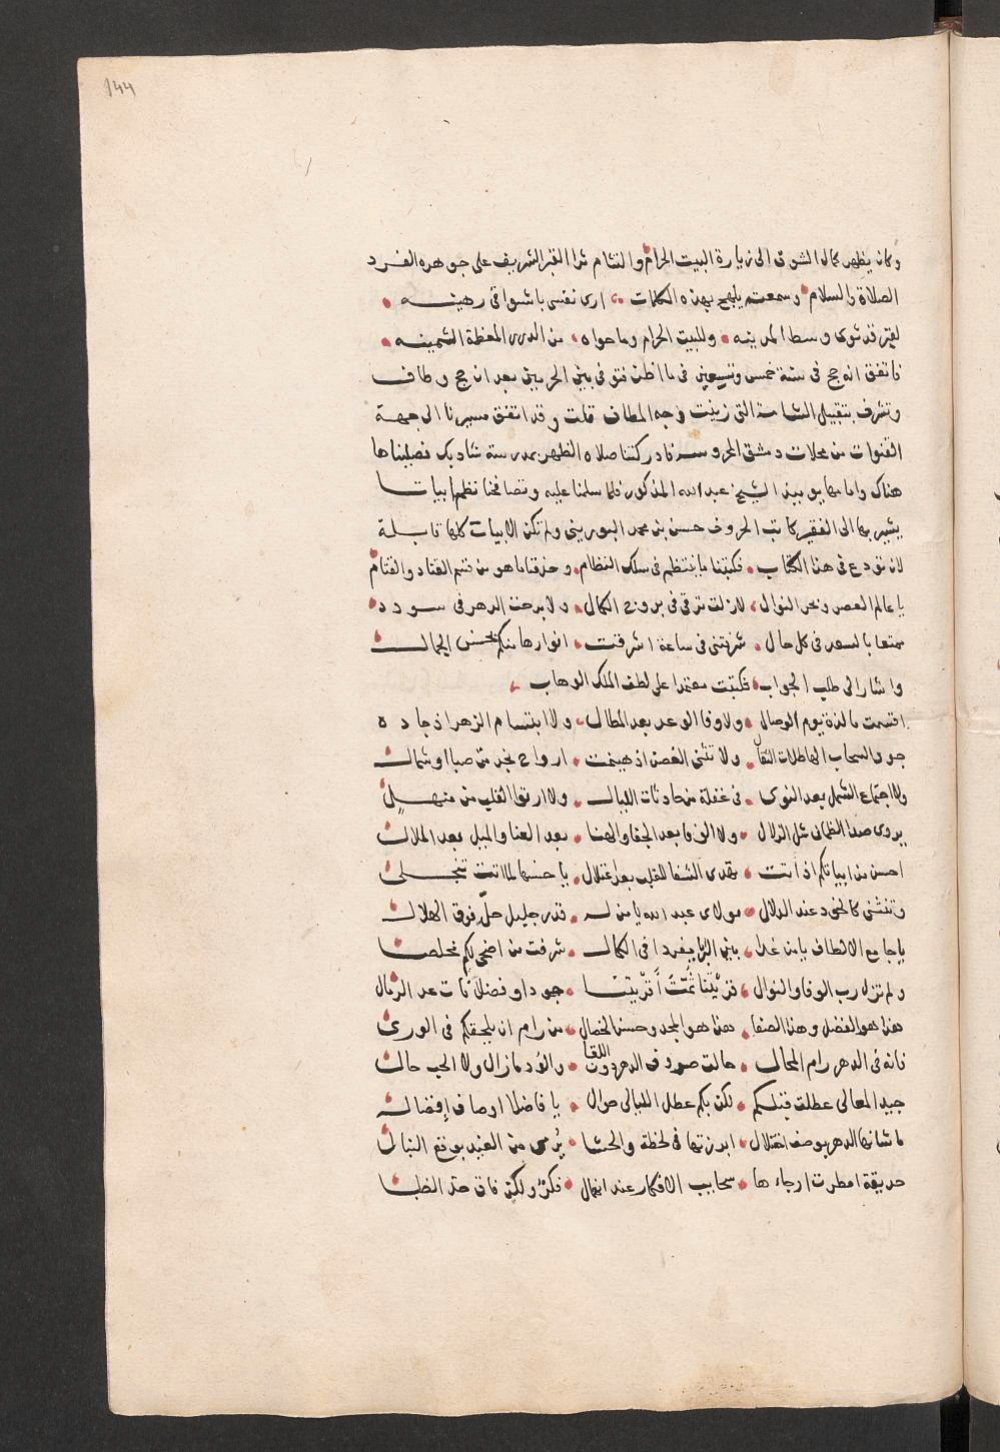 144
وكان يظهر كمال الشوق الى زيارة البيت الحرام والتثام ثرا القبر الشريف على جوهره الفرد
الصلاة والسلام وسمعته يلهج بهذه الكلمات ارى نفسى باشواقى رهينه
لقبر قد ثوى وسط المدينه وللبيت الحرام وما حواه من الدرر المعظمة الثمينه
فاتفق انه حج فى سنة خمس وتسعين فى ما اظن فتوفى بين الحرمين بعد ان حج وطاف
وتشرف بتقبيل الشامة التى زينت وجه المطاف قلت وقد اتفق مسيرنا الى جهة
القنوات من محلات دمشق المحروسه فادركتنا صلاه الظهر بمدرسة شادبك فصليناها
هناك وامامها يومئذ الشيخ عبد الله المذكور فلما سلمنا عليه وتصافحنا نظم ابياتا
يشير بها الى الفقير كاتب الحروف حسن بن محمد البورينى ولم تكن الابيات كلها قابلة
لان تودع فى هذا الكتاب فكتبنا ما ينتظم فى سلك النظام وحذفنا ما هو من قسم القتاد والقتام
يا عالم العصر وبحر النوال لازلت ترقى فى بروج الكمال ولا برحت الدهر فى سودد
ممتعا بالسعد فى كل حال شرفتنى فى ساعة اشرقت انوارها منكم بحسن الجمال
واشار الى طلب الجواب فكتبت معتمدا على لطف الملك الوهاب
اقسمت ما لذة يوم الوصال ولا وفا الوعد بعد المطال ولا ابتسام الزهر اذ جاده
جود السحاب الهاطلات الثقال ولا تثنى الغصن اذ هينمت ارواح نجد من صبا او شمال
ولا اجتماع الشمل بعد النوى فى غفلة من حادثات الليال ولا ارتوا القلب من منهل
يروى صدا الظمان مثل الزلال ولا الوفا بعد الجفا والهنا بعد العنا والميل بعد الملال
احسن من ابياتكم اذ اتت تهدى الشفا للقلب بعد اعتلال يا حسنها لما اتت تنجلى
وتنثنى كالخود عند الدلال مولاى عبد الله يا من له قدر جليل حلّ فوق الهلال
يا جامع الالطاف يا من غدا بين البرايا مفردا فى الكمال شرفت من اضحى لكم مخلصا
ولم تزل رب الوفا والنوال قرّبتنا ثمّت اقريتنا جودا وفضلا فات عد الرمال
هذا هو الفضل وهذا الصفا هذا هو المجد وحسن الخصال من رام ان يلحقكم فى الورى
فانه فى الدهر رام المحال حالت صروف الدهر دون اللقا والود ما زال ولا الحب حال
جيد المعالى عطلت قبلكم لكن بكم عطل الليالى حوال يا فاضلا اوصاف افضاله
ما شانها الدهر بوصف اختلال ابرزتها فى لحظة والحشا يُرمى من الغيد بوقع النبال
حديقة امطرت ارجاءها سحايب الافكار عند انهمال فكر ولكن فاق حد الظبا